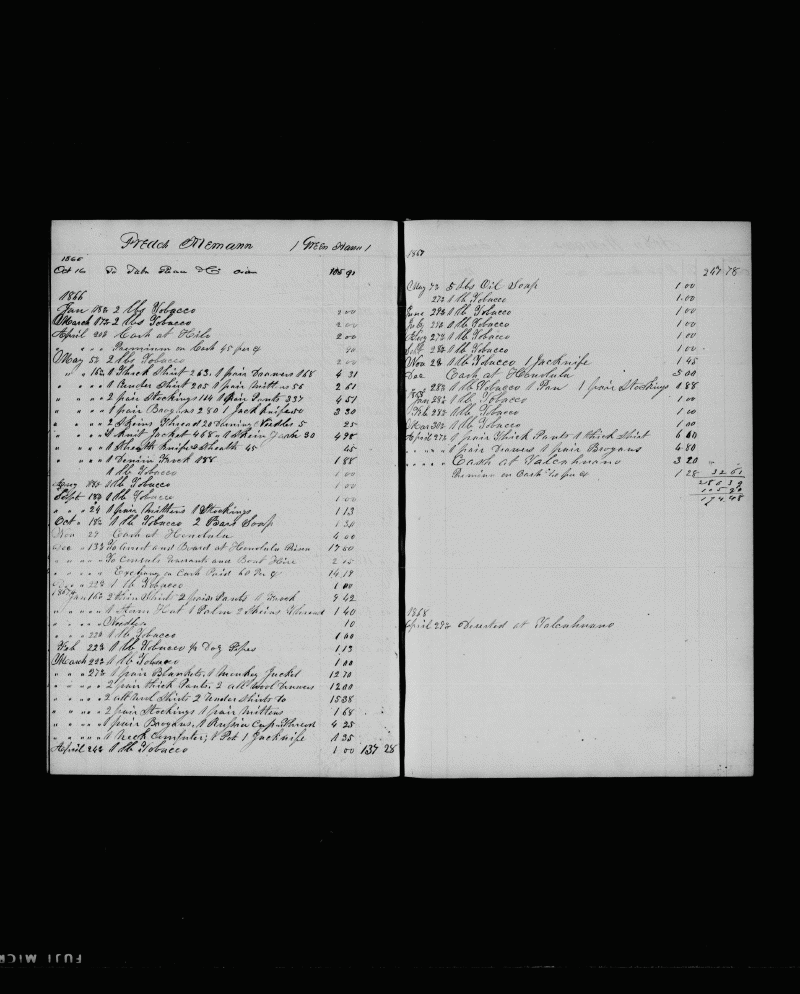 Fredck Alemann / Green Hand /
1865
Oct 16 To 105 90
1866
Jan 18th 2 lbs Tobacco 2 00
March 17th 2 lbs Tobacco 2 00
April 20th Cash at Hilo 2 00
" " " Premium on Cash 45 per ct 90
May 5th 2 lbs Tobacco 2 00
" " 18th 1 Thick Shirt 263. 1 pair Drawers 168 4 31
" " " 1 Under Shirt 205 1 pair Mittens 56 2 61
" " " 2 pair Stockings 114 1 pair Pants 337 4 51
" " " 1 pair Brogans 280 1 Jack Knife 50 3 30
" " " 2 Skeins Thread 20 Darning Needles 5 25
" " " 1 Knit Jacket 468 1 Skein Yarn 30 4 98
" " " 1 Sheath Knife & Sheath 45 45
" " " 1 Denim Frock 188 1 88
1 lb Tobacco 1 00
Aug 18th 1 lb Tobacco 1 00
Sept 18th 1 lb Tobacco 1 00
" " 24 1 pair Mittens 1 Stockings 1 13
Oct " 18th 1 lb Tobacco 2 Bars Soap 1 30
Nov 27 Cash at Honolulu 4 00
Dec " 13th To and Board at Honolulu Prison 17 50
" " " " To Consuls Warrants and Boat Hire
" " " " Exchange on Cash Paid 60 Pr ct 14 19
Dec " 22th 1 lb Tobacco 1 00
1867 Jan 16th 2 Shirt 2 pair Pants 1 Frock 9 42
" " " " 1 Hat 1 Palm 2 Skeins Thread 1 40
" " " Needles 10
" " 22th 1 lb Tobacco 1 00
Feb 22th 1 lb Tobacco ½ Doz Pipes 1 13
March 22th 1 lb Tobacco 1 00
" " 27th 1 pair Blankets, 1 Monkey Jacket 12 70
" " " 2 pair thick Pants. 2 all Wool Drawers 12 00
" " " 2 all Wool Shirts 2 Under Shirts 15 38
" " " 2 pair Stockings 1 pair Mittens 1 68
" " " 1 pair Brogans, 1 Russia Cap Thread 4 25
" " " 1 Neck Comforter; 1 Pot 1 Jacknife 1 35
April 24th 1 lb Tobacco 1 00 137 28
1867
247 78
May 7th 5 lbs Oil Soap 1 00
27th 1 lb Tobacco 1 00
June 29th 1 lb Tobacco 1 00
July 21th 1 lb Tobacco 1 00
Aug 27th 1 lb Tobacco 1 00
Sept 28th 1 lb Tobacco 1 00
Nov 2th 1 lb Tobacco 1 Jacknife 1 45
Dec Cash at Honolulu 5 00
" 28th 1 lb Tobacco 1 Pan 1 pair Stockings 1 88
1868
Jan 28th 1 lb Tobacco 1 00
Feb 28th 1 lb Tobacco 1 00
Mar 30th 1 lb Tobacco 1 00
April 27th 1 pair Thick Pants 1 thick Shirt 6 60
" " " " 1 pair Drawers 1 pair Brogans 4 80
" " " " Cash at Talcahuano 3 20
Premium on Cash 40 per ct 1 28 32 61
280 39
105 90
174 48
1868
April 29th Deserted at Talcahuano
FUJI MICR